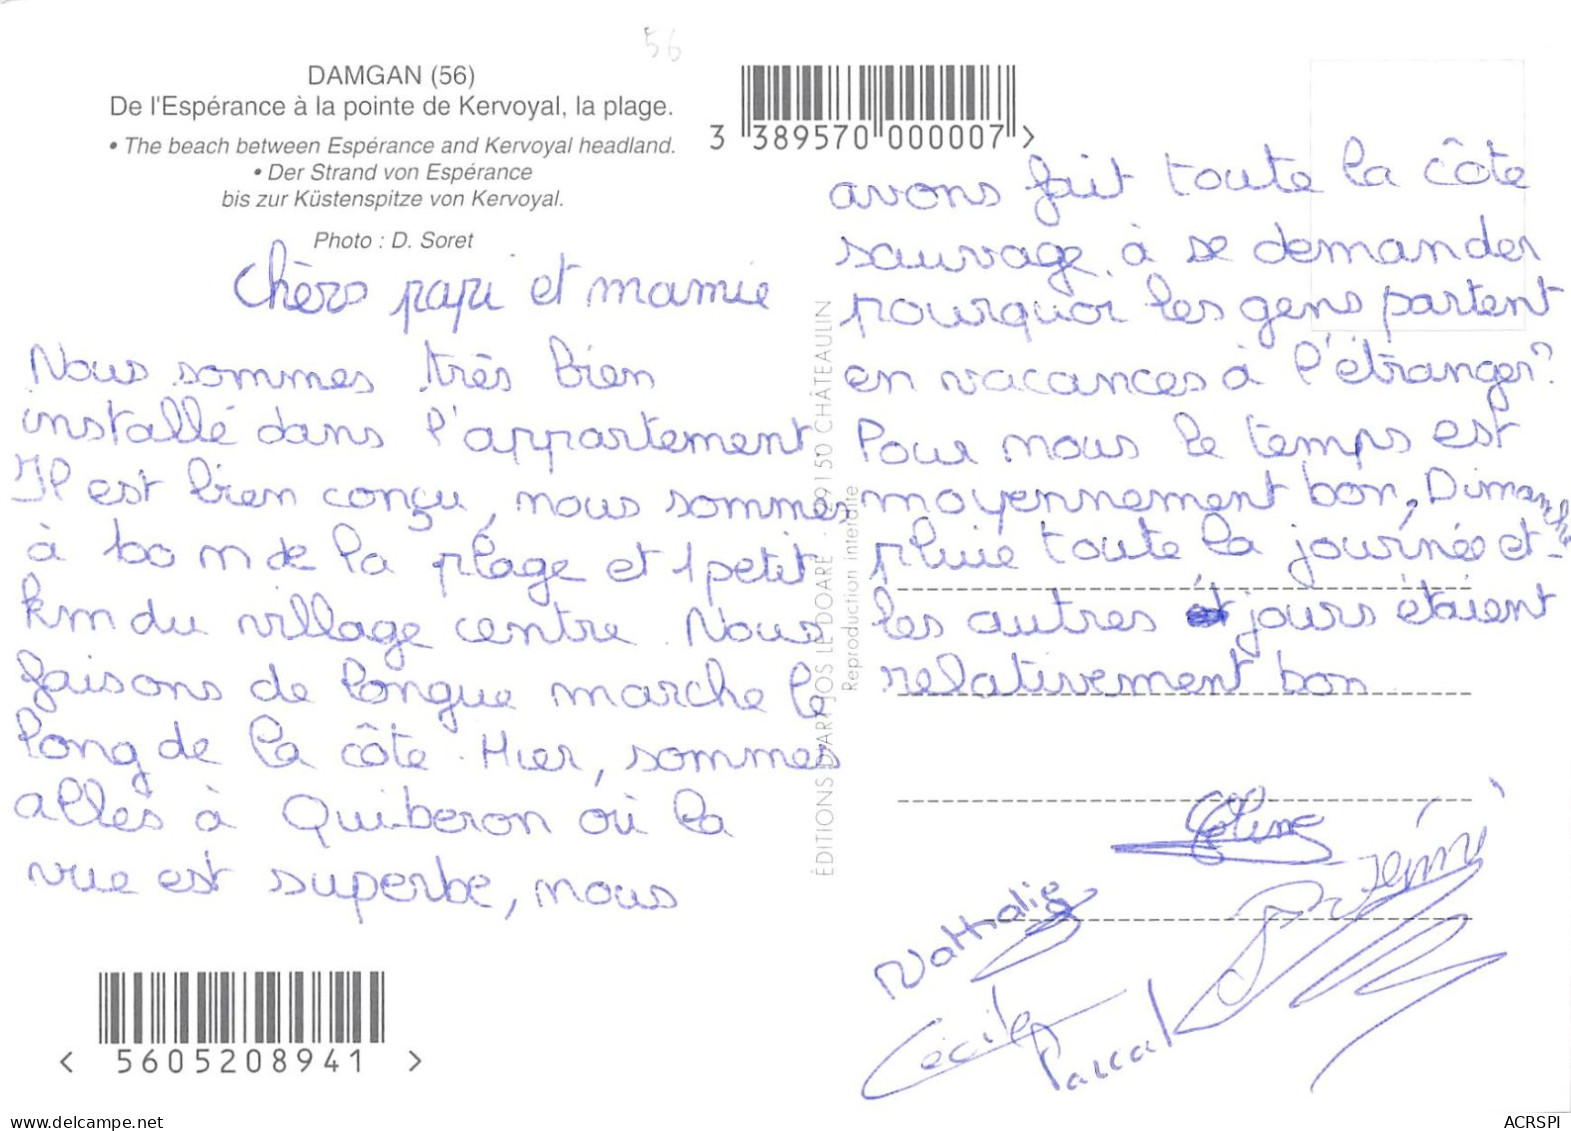 56
DAMGAN (56)
De l'Espérance à la pointe de Kervoyal, la plage.
• The beach between Espérance and Kervoyal headland.
• Der Strand von Espérance
bis zur Küstenspitze von Kervoyal.
Photo : D. Soret
3 389570 000007 >
Chèrs papi et mamie
Nous sommes très bien
installé dans l'appartement
Il est bien conçu, nous sommes
à 100 m de la plage et 1 petit
km du village centre. Nous
faisons de longue marche le
long de la côte. Hier, sommes
allés à Quiberon où la
vue est superbe, nous
avons fait toute la côte
sauvage, à se demander
pourquoi les gens partent
en vacances à l'étranger?
Pour nous le temps est
moyennement bon, Dimanche
pluie toute la journée et
les autres jours étaient
relativement bon
Céline
Rémi
Nathalie
Cécile
Pascal
ÉDITIONS D'ART JOS LE DOARÉ - 29150 CHÂTEAULIN
Reproduction interdite
< 5605208941 >
delcampe.net
ACRSPI